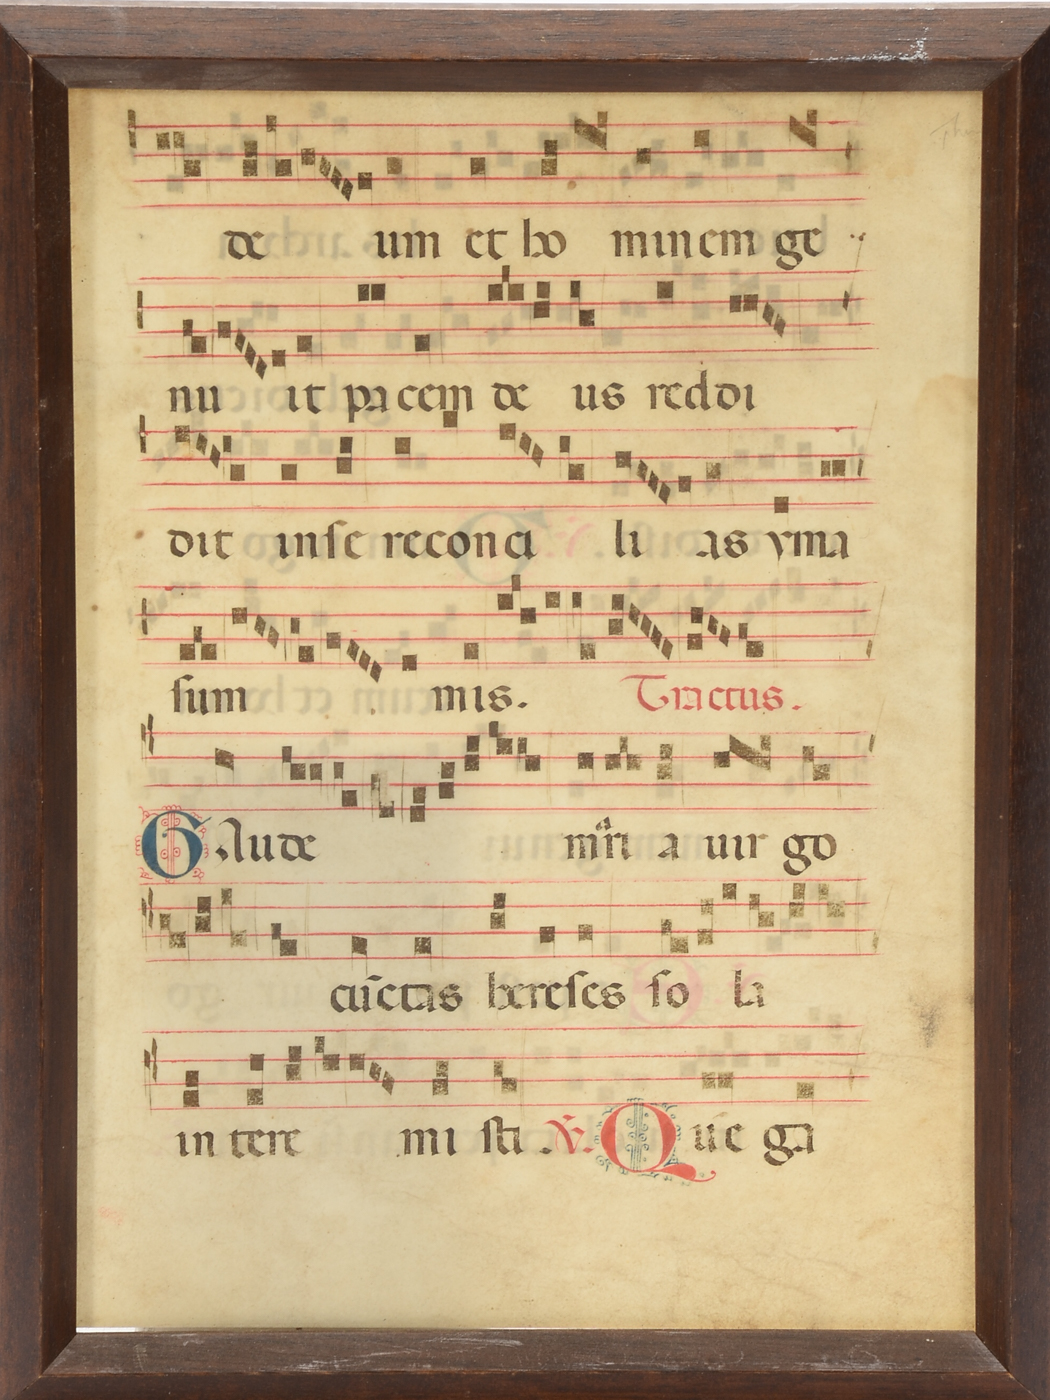 de um et ho minem ge
nu it pacem de us reddi
dit in se reconci li as yma
sum mis. Tractus.
Gaude mr̃ia uir go
cũctas hereses so la
in tere mi sti . ℣. Que ga